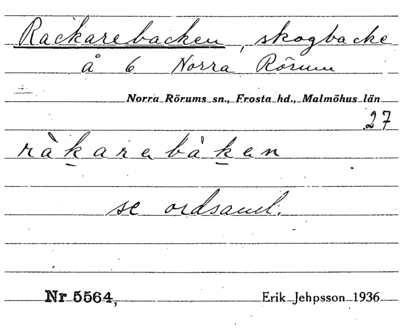 Rackarebacken, skogbacke
å 6 Norra Rörum
Norra Rörums sn., Frosta hd., Malmöhus län
27
ràkarebàken
se ordsaml.
Nr 5564, Erik Jehpsson 1936